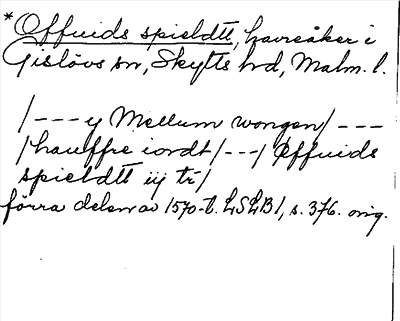 *Øffuids spieldtt, havreåker i
Gislövs sn, Skytts hd, Malm. l.
/--- y Mellum wongen/ ---
/hauffre iordt/---/ Øffuids
spieldtt iij tr/
förra delen av 1570-t. LSLB1, s. 376. orig.